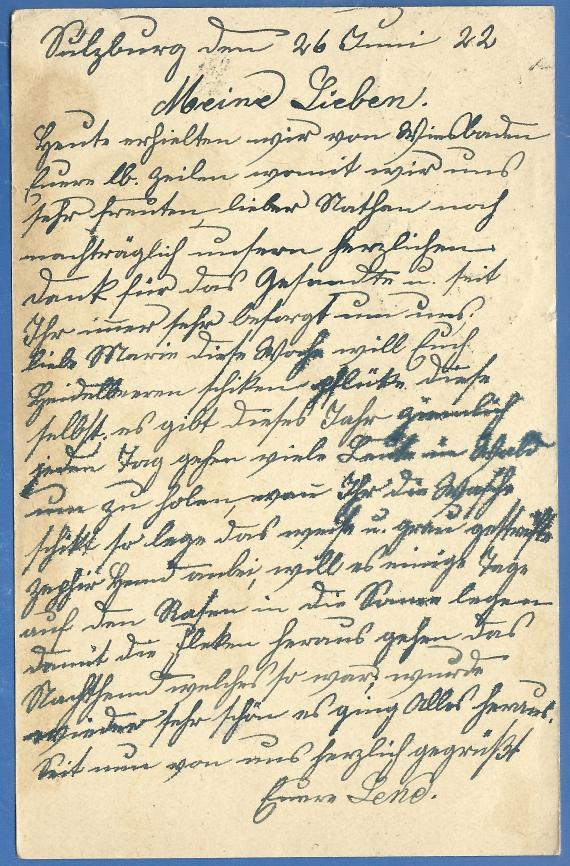 Sulzburg den 26 Juni 22
Meine Lieben.
Heute erhielten wir von Wiesbaden
Euere lb. Zeilen womit wir uns
sehr freuten, lieber Nathan noch
nachträglich unsern herzlichen
Dank für das Gesandte u. seit
Ihr imer sehr besorgt um uns.
liebe Marie diese Woche will Euch
Heidelbeeren schiken pflüke diese
selbst. es gibt dieses Jahr ziemlich
jeden Tag gehen viele Leute in Wald
um zu holen, wan Ihr die Wäsche
schikt so lege das weiß u. grau gestreifte
Zephir Hemd anbei, will es einige Tage
auf den Rasen in die Sonne legen
damit die Fleken heraus gehen das
Nachthemd welches so war, wurde
wieder sehr schön es ging Alles heraus.
Seit nun von uns herzlich gegrüßt
Euere Lene.